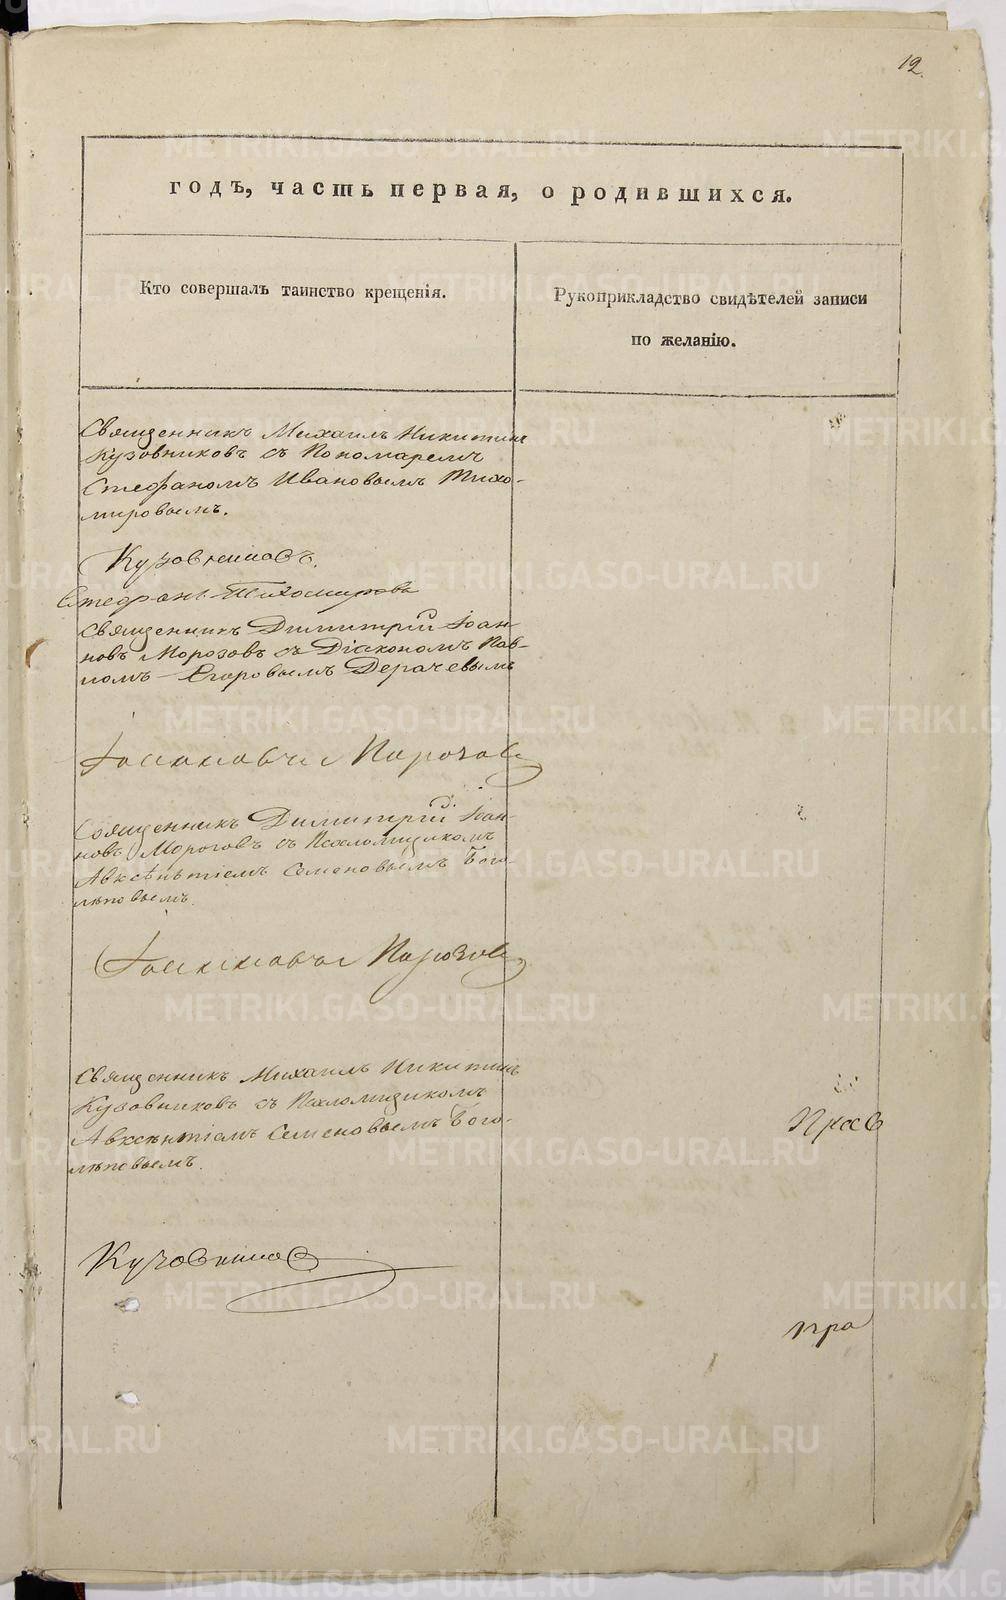 12.
годъ, часть первая, о родившихся.
Кто совершалъ таинство крещенія.
Рукоприкладство свидѣтелей записи
по желанію.
Священникъ Михаилъ Никитинъ
Кузовниковъ съ Пономаремъ
Стефаномъ Ивановымъ Тихо-
мировымъ.
Кузовниковъ.
Стефанъ Тихомировъ
Священникъ Димитрій Іоан-
новъ Морозовъ съ Діакономъ Пав-
ломъ Егоровымъ Дерачевымъ
Морозовъ
Священникъ Димитрій Іоан-
новъ Морозовъ съ Псаломщикомъ
Авксентіемъ Семеновымъ Бого-
лѣповымъ.
Морозовъ
Священникъ Михаилъ Никитинъ
Кузовниковъ съ Псаломщикомъ
Авксентіемъ Семеновымъ Бого-
лѣповымъ.
Кузовников
METRIKI.GASO-URAL.RU